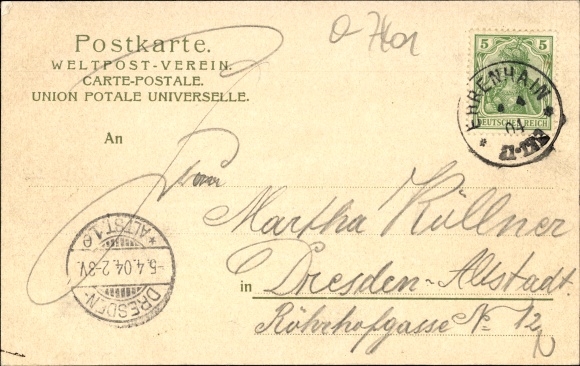 Postkarte.
WELTPOST-VEREIN.
CARTE-POSTALE.
UNION POTALE UNIVERSELLE.
5 5
DEUTSCHES REICH
EHRENHAIN
04
An
Martha Küllner
in Dresden-Altstadt.
Röhrhofgasse No 12
*ALTST.1.e
-5.4.04.2-3V.
DRESDEN-